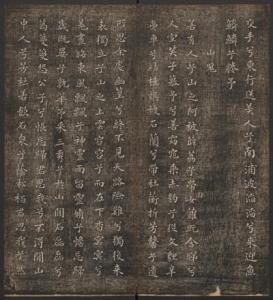 交手兮東行送美人兮南浦波滔滔兮來迎魚
鱗鱗兮媵予
山鬼
若有人兮山之阿被薜荔兮帶女蘿既含睇兮
又宜笑子慕予兮善窈窕乘赤豹兮從文貍辛
夷車兮結桂旗被石蘭兮帶杜衡折芳馨兮遺
所思余處幽篁兮終不見天路險難兮獨後來
表獨立兮山之上雲容容兮而在下杳冥冥兮
羌晝晦東風飄飄兮神靈雨留靈脩兮憺忘歸
歲既晏兮孰華予采三秀兮於山間石磊磊兮
葛蔓蔓怨公子兮悵忘歸君思我兮不得閒山
中人兮芳杜若飲石泉兮蔭松柏君思我兮然